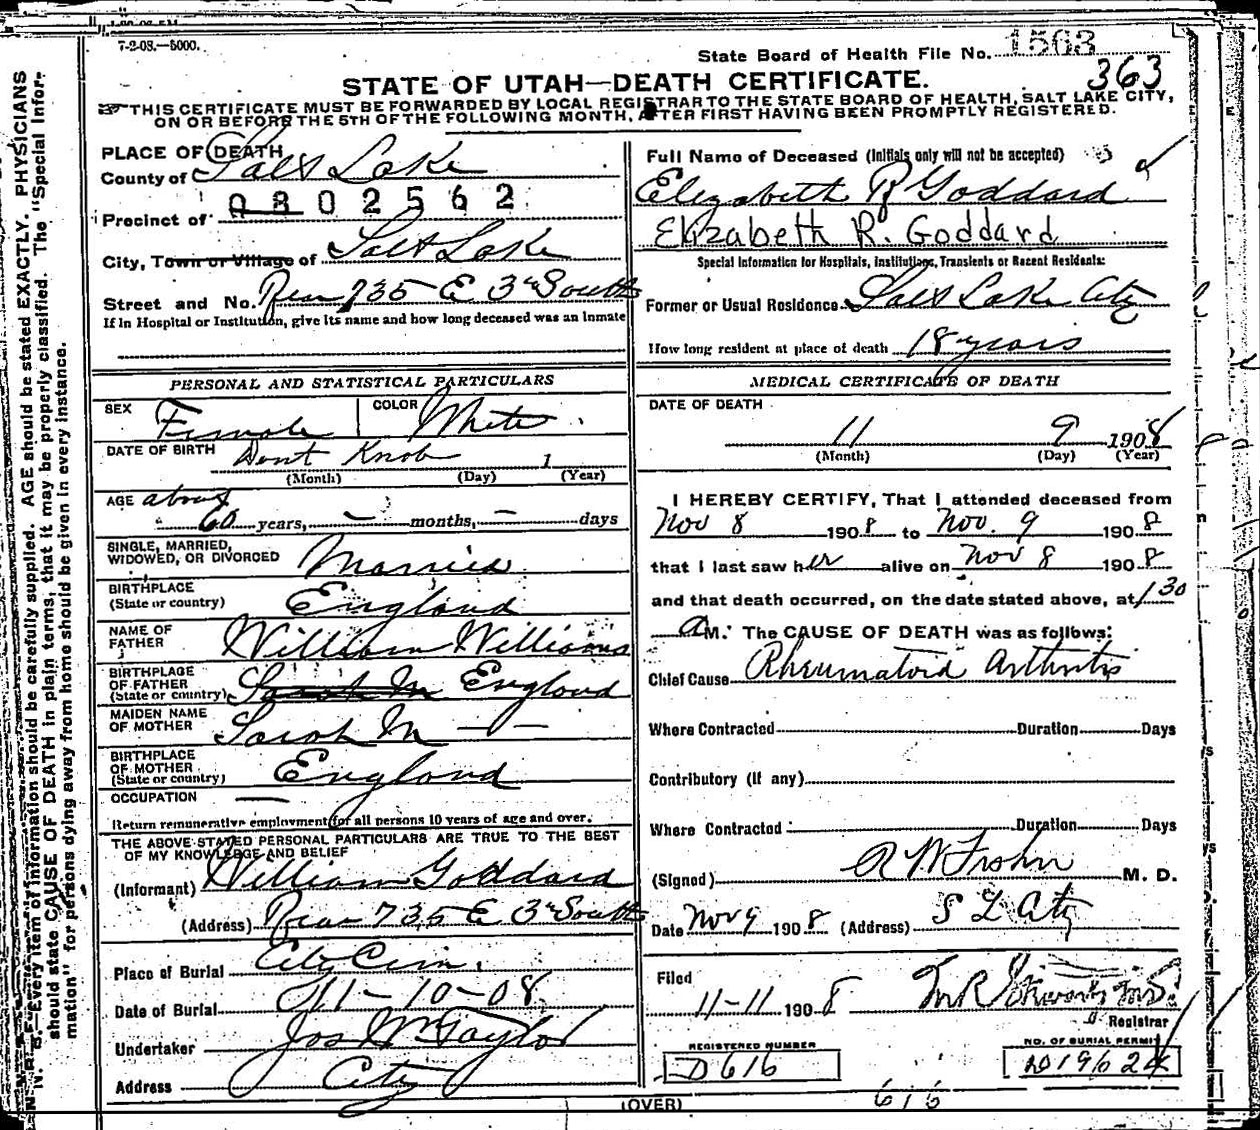 7-2-08.—5000.
State Board of Health File No. 1563
363
STATE OF UTAH—DEATH CERTIFICATE.
THIS CERTIFICATE MUST BE FORWARDED BY LOCAL REGISTRAR TO THE STATE BOARD OF HEALTH, SALT LAKE CITY,
ON OR BEFORE THE 5TH OF THE FOLLOWING MONTH, AFTER FIRST HAVING BEEN PROMPTLY REGISTERED.
N. B.—Every item of information should be carefully supplied. AGE should be stated EXACTLY. PHYSICIANS
should state CAUSE OF DEATH in plain terms, that it may be properly classified. The "Special Infor-
mation" for persons dying away from home should be given in every instance.
PLACE OF DEATH
County of Salt Lake
0802562
Precinct of
City, Town or Village of Salt Lake
Street and No. Rear 735 E 3rd South
If in Hospital or Institution, give its name and how long deceased was an inmate
PERSONAL AND STATISTICAL PARTICULARS
SEX Female COLOR White
DATE OF BIRTH Dont Know 1
(Month) (Day) (Year)
AGE about
60 years, — months, — days
SINGLE, MARRIED,
WIDOWED, OR DIVORCED Married
BIRTHPLACE
(State or country) England
NAME OF
FATHER William Williams
BIRTHPLACE
OF FATHER
(State or country) Sarah M England
MAIDEN NAME
OF MOTHER Sarah M — —
BIRTHPLACE
OF MOTHER
(State or country) England
OCCUPATION —
Return remunerative employment for all persons 10 years of age and over.
THE ABOVE STATED PERSONAL PARTICULARS ARE TRUE TO THE BEST
OF MY KNOWLEDGE AND BELIEF
(Informant) William Goddard
(Address) Rear 735 E 3rd South
Place of Burial City Cem.
Date of Burial 11-10-08
Undertaker Jos Wm Taylor
Address City
Full Name of Deceased (Initials only will not be accepted)
Elizabeth R Goddard
Elizabeth R. Goddard
Special Information for Hospitals, Institutions, Transients or Recent Residents:
Former or Usual Residence Salt Lake City
How long resident at place of death 18 years
MEDICAL CERTIFICATE OF DEATH
DATE OF DEATH
11 9 1908
(Month) (Day) (Year)
I HEREBY CERTIFY, That I attended deceased from
Nov 8 1908 to Nov. 9 1908
that I last saw her alive on Nov 8 1908
and that death occurred, on the date stated above, at 1 30
a M. The CAUSE OF DEATH was as follows:
Chief Cause Rheumatoid Arthritis
Where Contracted Duration Days
Contributory (if any)
Where Contracted Duration Days
(Signed) M. D.
Date Nov 9 1908 (Address) S L City
Filed
11-11 1908
Registrar
REGISTERED NUMBER
D 616
NO. OF BURIAL PERMIT
D19624
616
(OVER)